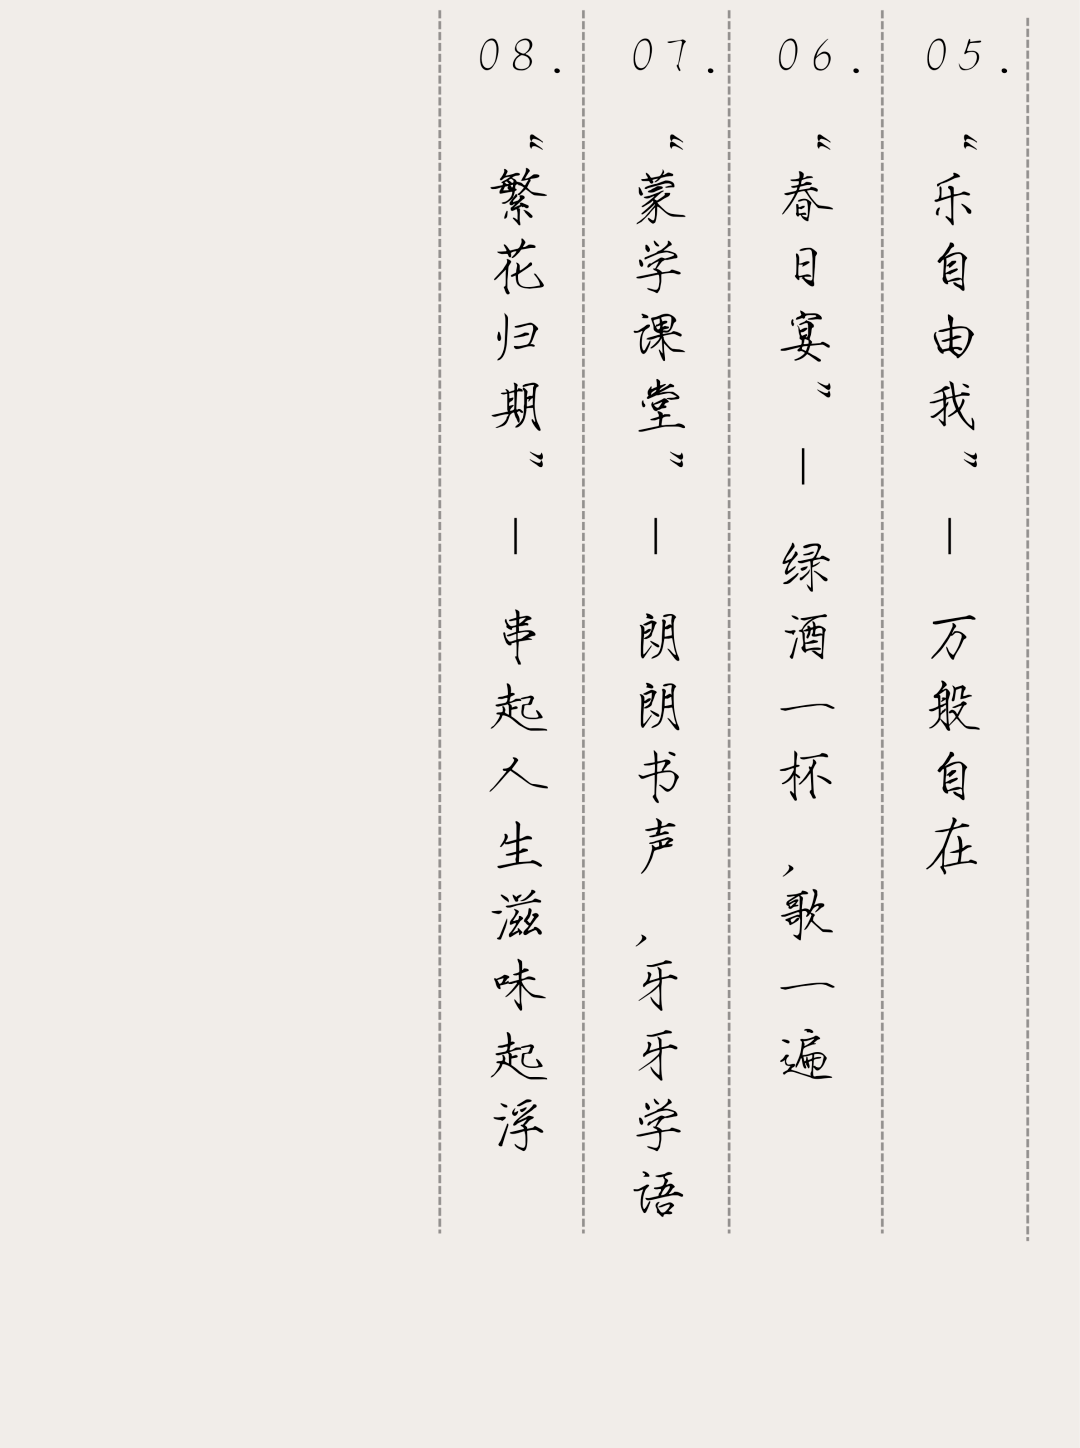 05.
“乐自由我”— 万般自在
06.
“春日宴”— 绿酒一杯,歌一遍
07.
“蒙学课堂”— 朗朗书声,牙牙学语
08.
“繁花归期”— 串起人生滋味起浮